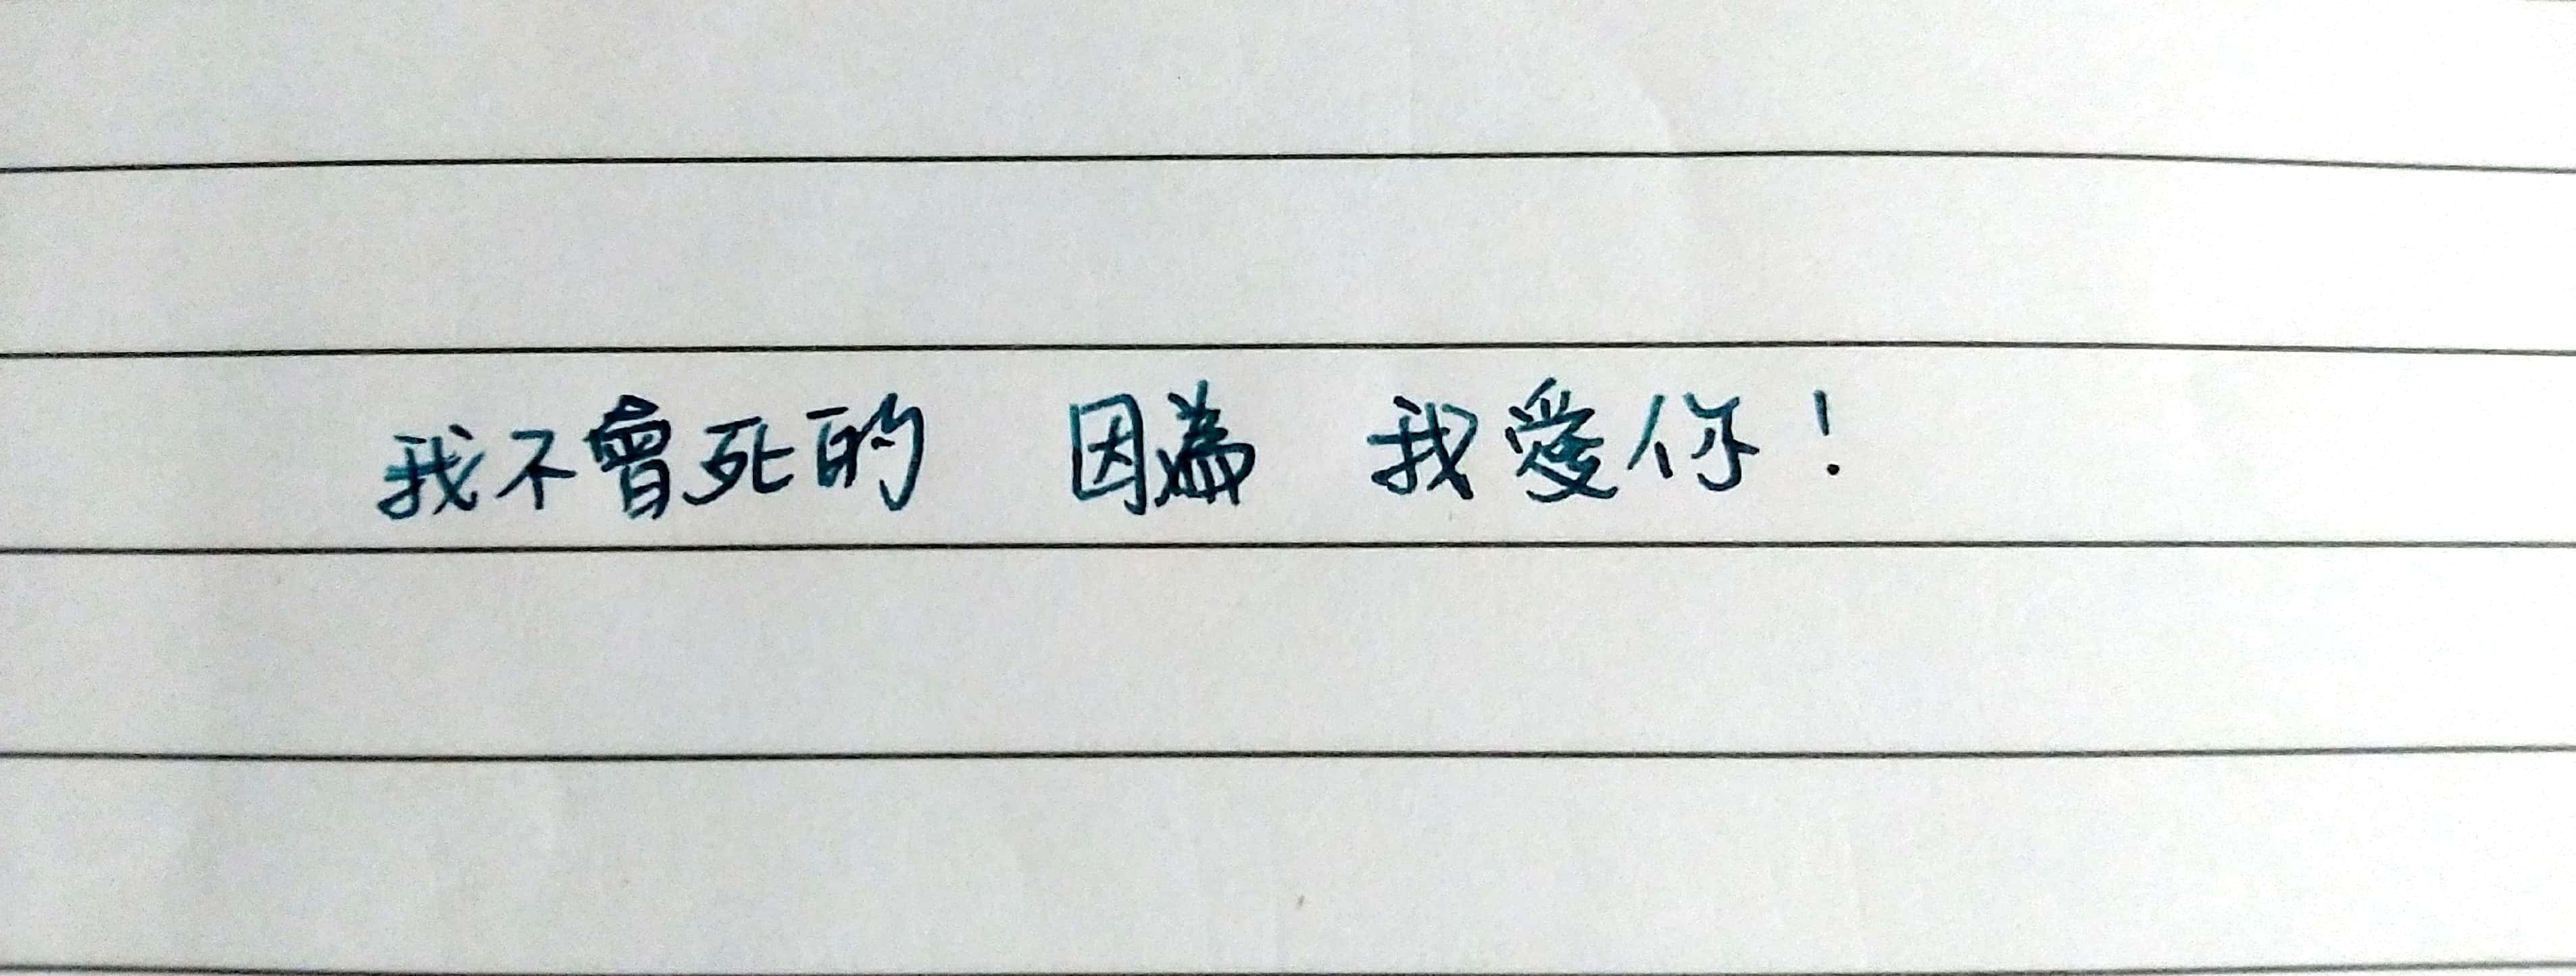 我不會死的 因為 我愛你！